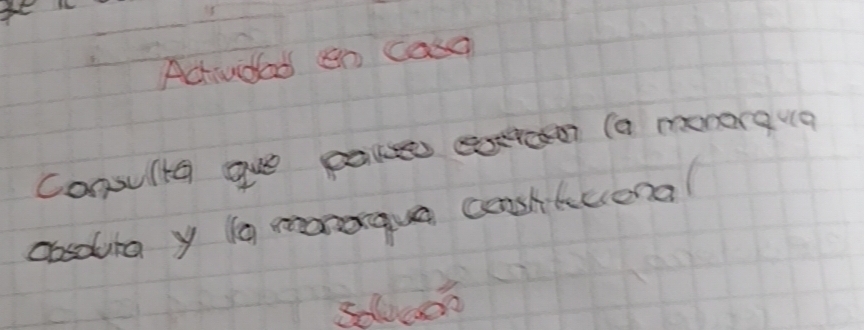 Actividad en casa
Consulta que paises ejercen la monarquia
absoluta y la monarquia constitucional
Solución